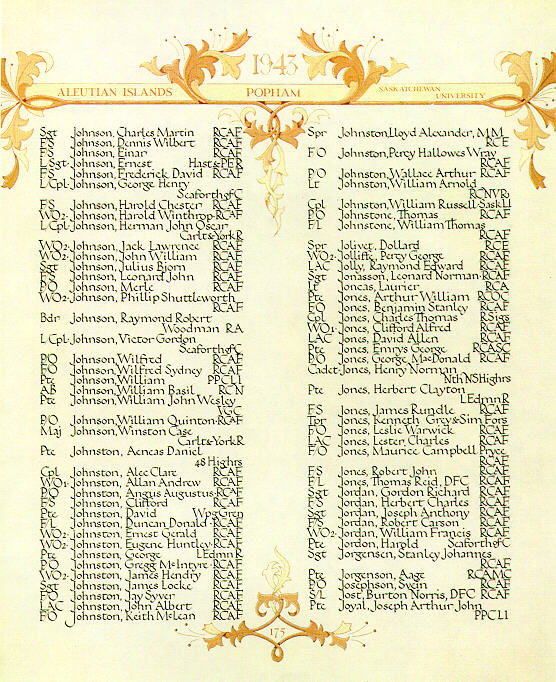 1943
ALEUTIAN ISLANDS
POPHAM
SASKATCHEWAN
UNIVERSITY
Sgt Johnson, Charles Martin RCAF
FS Johnson, Dennis Wilbert RCAF
FS Johnson, Einar RCAF
LSgt Johnson, Ernest Hast&PER
FS Johnson, Frederick David RCAF
L/Cpl Johnson, George Henry
SeaforthofC
FS Johnson, Harold Chester RCAF
WO2 Johnson, Harold Winthrop RCAF
L/Cpl Johnson, Herman John Oscar
Carlt&YorkR
WO2 Johnson, Jack Lawrence RCAF
WO2 Johnson, John William RCAF
Sgt Johnson, Julius Bjorn RCAF
FS Johnson, Leonard John RCAF
PO Johnson, Merle RCAF
WO2 Johnson, Phillip Shuttleworth
RCAF
Bdr Johnson, Raymond Robert
Woodman RA
L/Cpl Johnson, Victor Gordon
SeaforthofC
PO Johnson, Wilfred RCAF
FO Johnson, Wilfred Sydney RCAF
Pte Johnson, William PPCLI
AB Johnson, William Basil RCN
Pte Johnson, William John Wesley
VGC
P/O Johnson, William Quinton RCAF
Maj Johnson, Winston Case
Carlt&YorkR
Pte Johnston, Aeneas Daniel
48Highrs
Cpl Johnston, Alec Clare RCAF
WO1 Johnston, Allan Andrew RCAF
P/O Johnston, Angus Augustus RCAF
FS Johnston, Clifford RCAF
Pte Johnston, David WpgGren
F/L Johnston, Duncan Donald RCAF
WO2 Johnston, Ernest Gerald RCAF
WO2 Johnston, Eugene Huntley RCAF
Pte Johnston, George LEdmnR
PO Johnston, Gregg McIntyre RCAF
WO2 Johnston, James Hendry RCAF
Sgt Johnston, James Locke RCAF
FO Johnston, Jay Syver RCAF
LAC Johnston, John Albert RCAF
FO Johnston, Keith McLean RCAF
Spr Johnston, Lloyd Alexander, MM
RCE
FO Johnston, Percy Hallowes Wray
RCAF
PO Johnston, Wallace Arthur RCAF
Lt Johnston, William Arnold
RCNVR
Cpl Johnston, William Russell SaskLI
P/O Johnstone, Thomas RCAF
FL Johnstone, William Thomas
RCAF
Spr Jolivet, Dollard RCE
WO2 Jolliffe, Percy George RCAF
LAC Jolly, Raymond Edward RCAF
Sgt Jonasson, Leonard Norman RCAF
Lt Joncas, Laurier RCA
Pte Jones, Arthur William RCOC
FO Jones, Benjamin Stanley RCAF
Cpl Jones, Charles Thomas RSigs
WO1 Jones, Clifford Alfred RCAF
LAC Jones, David Allen RCAF
Pte Jones, Emrys George RCASC
PO Jones, George MacDonald RCAF
Cadet Jones, Henry Norman
NthNSHighrs
Pte Jones, Herbert Clayton
LEdmnR
FS Jones, James Rundle RCAF
Tpr Jones, Kenneth Grey&SimFors
FO Jones, Leslie Warwick RCAF
LAC Jones, Lester Charles RCAF
F/O Jones, Maurice Campbell Pryce
RCAF
FS Jones, Robert John RCAF
F/L Jones, Thomas Reid, DFC RCAF
Sgt Jordan, Gordon Richard RCAF
FS Jordan, Herbert Charles RCAF
Sgt Jordan, Joseph Anthony RCAF
F/S Jordan, Robert Carson RCAF
WO2 Jordan, William Francis RCAF
Pte Jordon, Harold SeaforthofC
Sgt Jorgensen, Stanley Johannes
RCAF
Pte Jorgenson, Aage RCAMC
PO Josephson, Svein RCAF
S/L Jost, Burton Norris, DFC RCAF
Pte Joyal, Joseph Arthur John
PPCLI
175